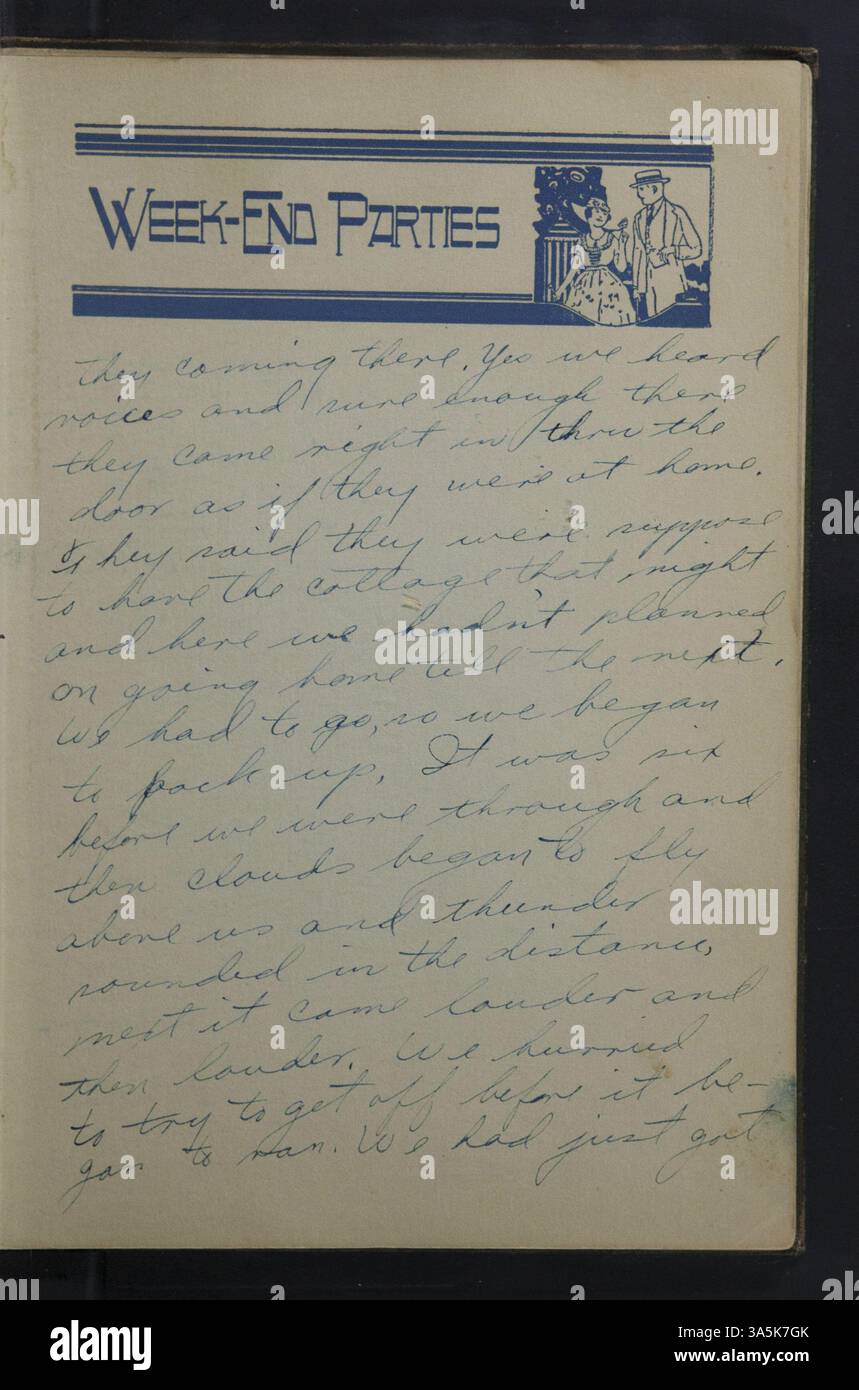 WEEK-END PARTIES
they coming there. Yes we heard
voices and sure enough there
they came right in thru the
door as if they were at home.
They said they were suppose
to have the cottage that night
and here we hadn't planned
on going home till the next.
We had to go, so we began
to pack up. It was six
before we were through and
then clouds began to fly
above us and thunder
sounded in the distance,
next it came louder and
then louder. We hurried
to try to get off before it be-
gan to ran. We had just got
alamy
Image ID: 3A5K7GK
www.alamy.com